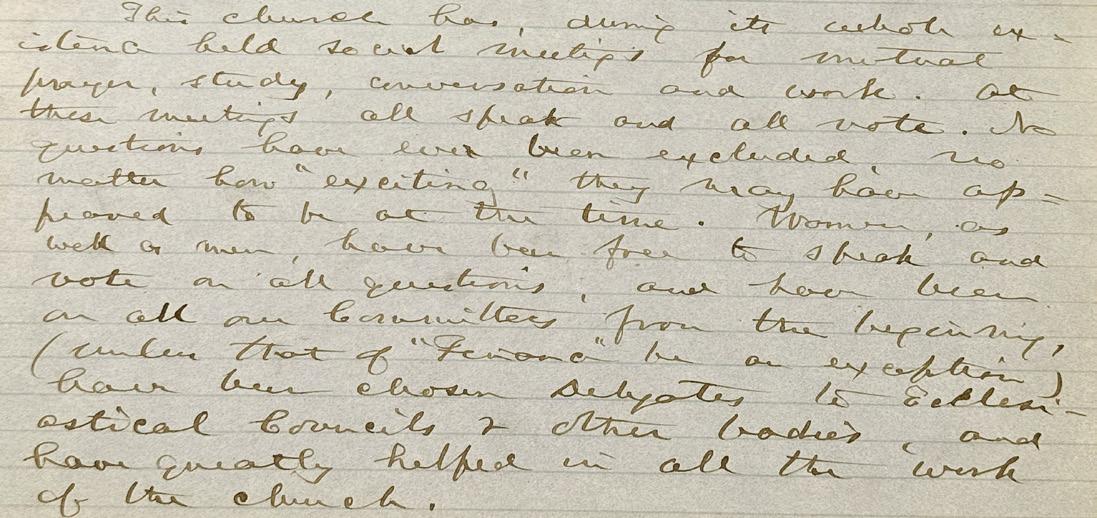 This church has, during its whole ex-
istence held social meetings for mutual
prayer, study, conversation and work. At
these meetings all speak and all vote. No
questions have ever been excluded, no
matter how "exciting" they may have ap=
peared to be at the time. Women, as
well as men, have been free to speak and
vote on all questions, and have been
on all our Committees from the beginning,
(unless that of "Finance" be an exception)
have been chosen Delegates to Ecclesi-
astical Councils & other bodies, and
have greatly helped in all the work
of the church.